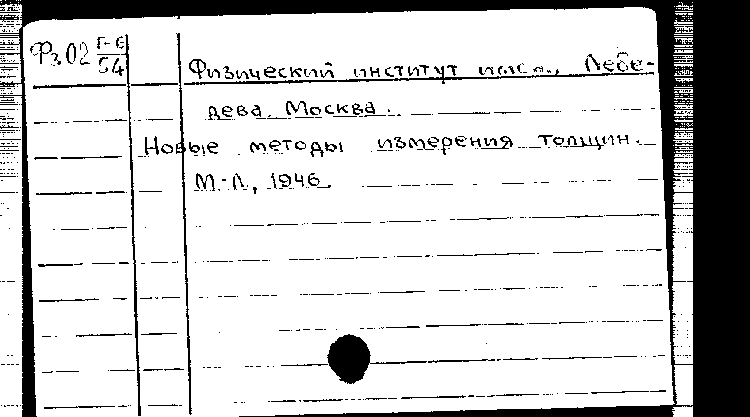 Фз02 Г-Е
54
Физический институт Лебе-
дева. Москва.
Новые методы измерения толщин.
М.-Л., 1946.